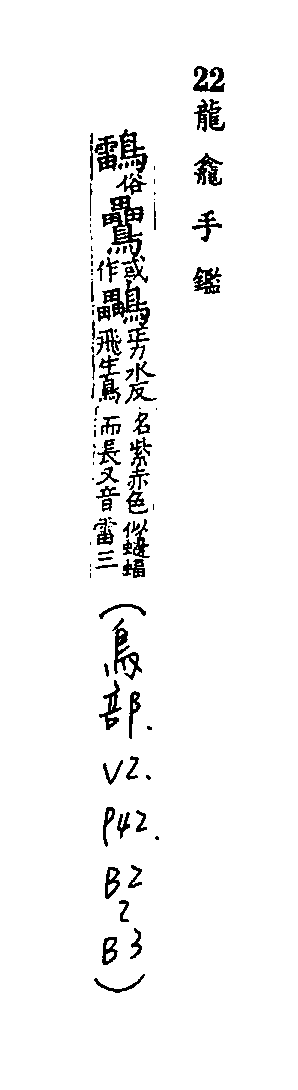 22龍龕手鑑
俗
或作
鸓
正力水反
飛生鳥
名紫赤色似蝙蝠
而長又音雷三
(鳥部.V2.P42.B2~B3)